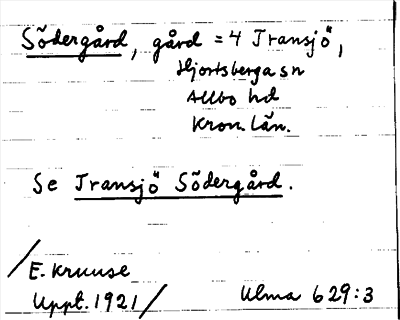 Södergård, gård = 4 Transjö,
Hjortsberga sn
Allbo hd
Kron. län.
Se Transjö Södergård.
/E. Kruuse
Uppt. 1921/
Ulma 629:3